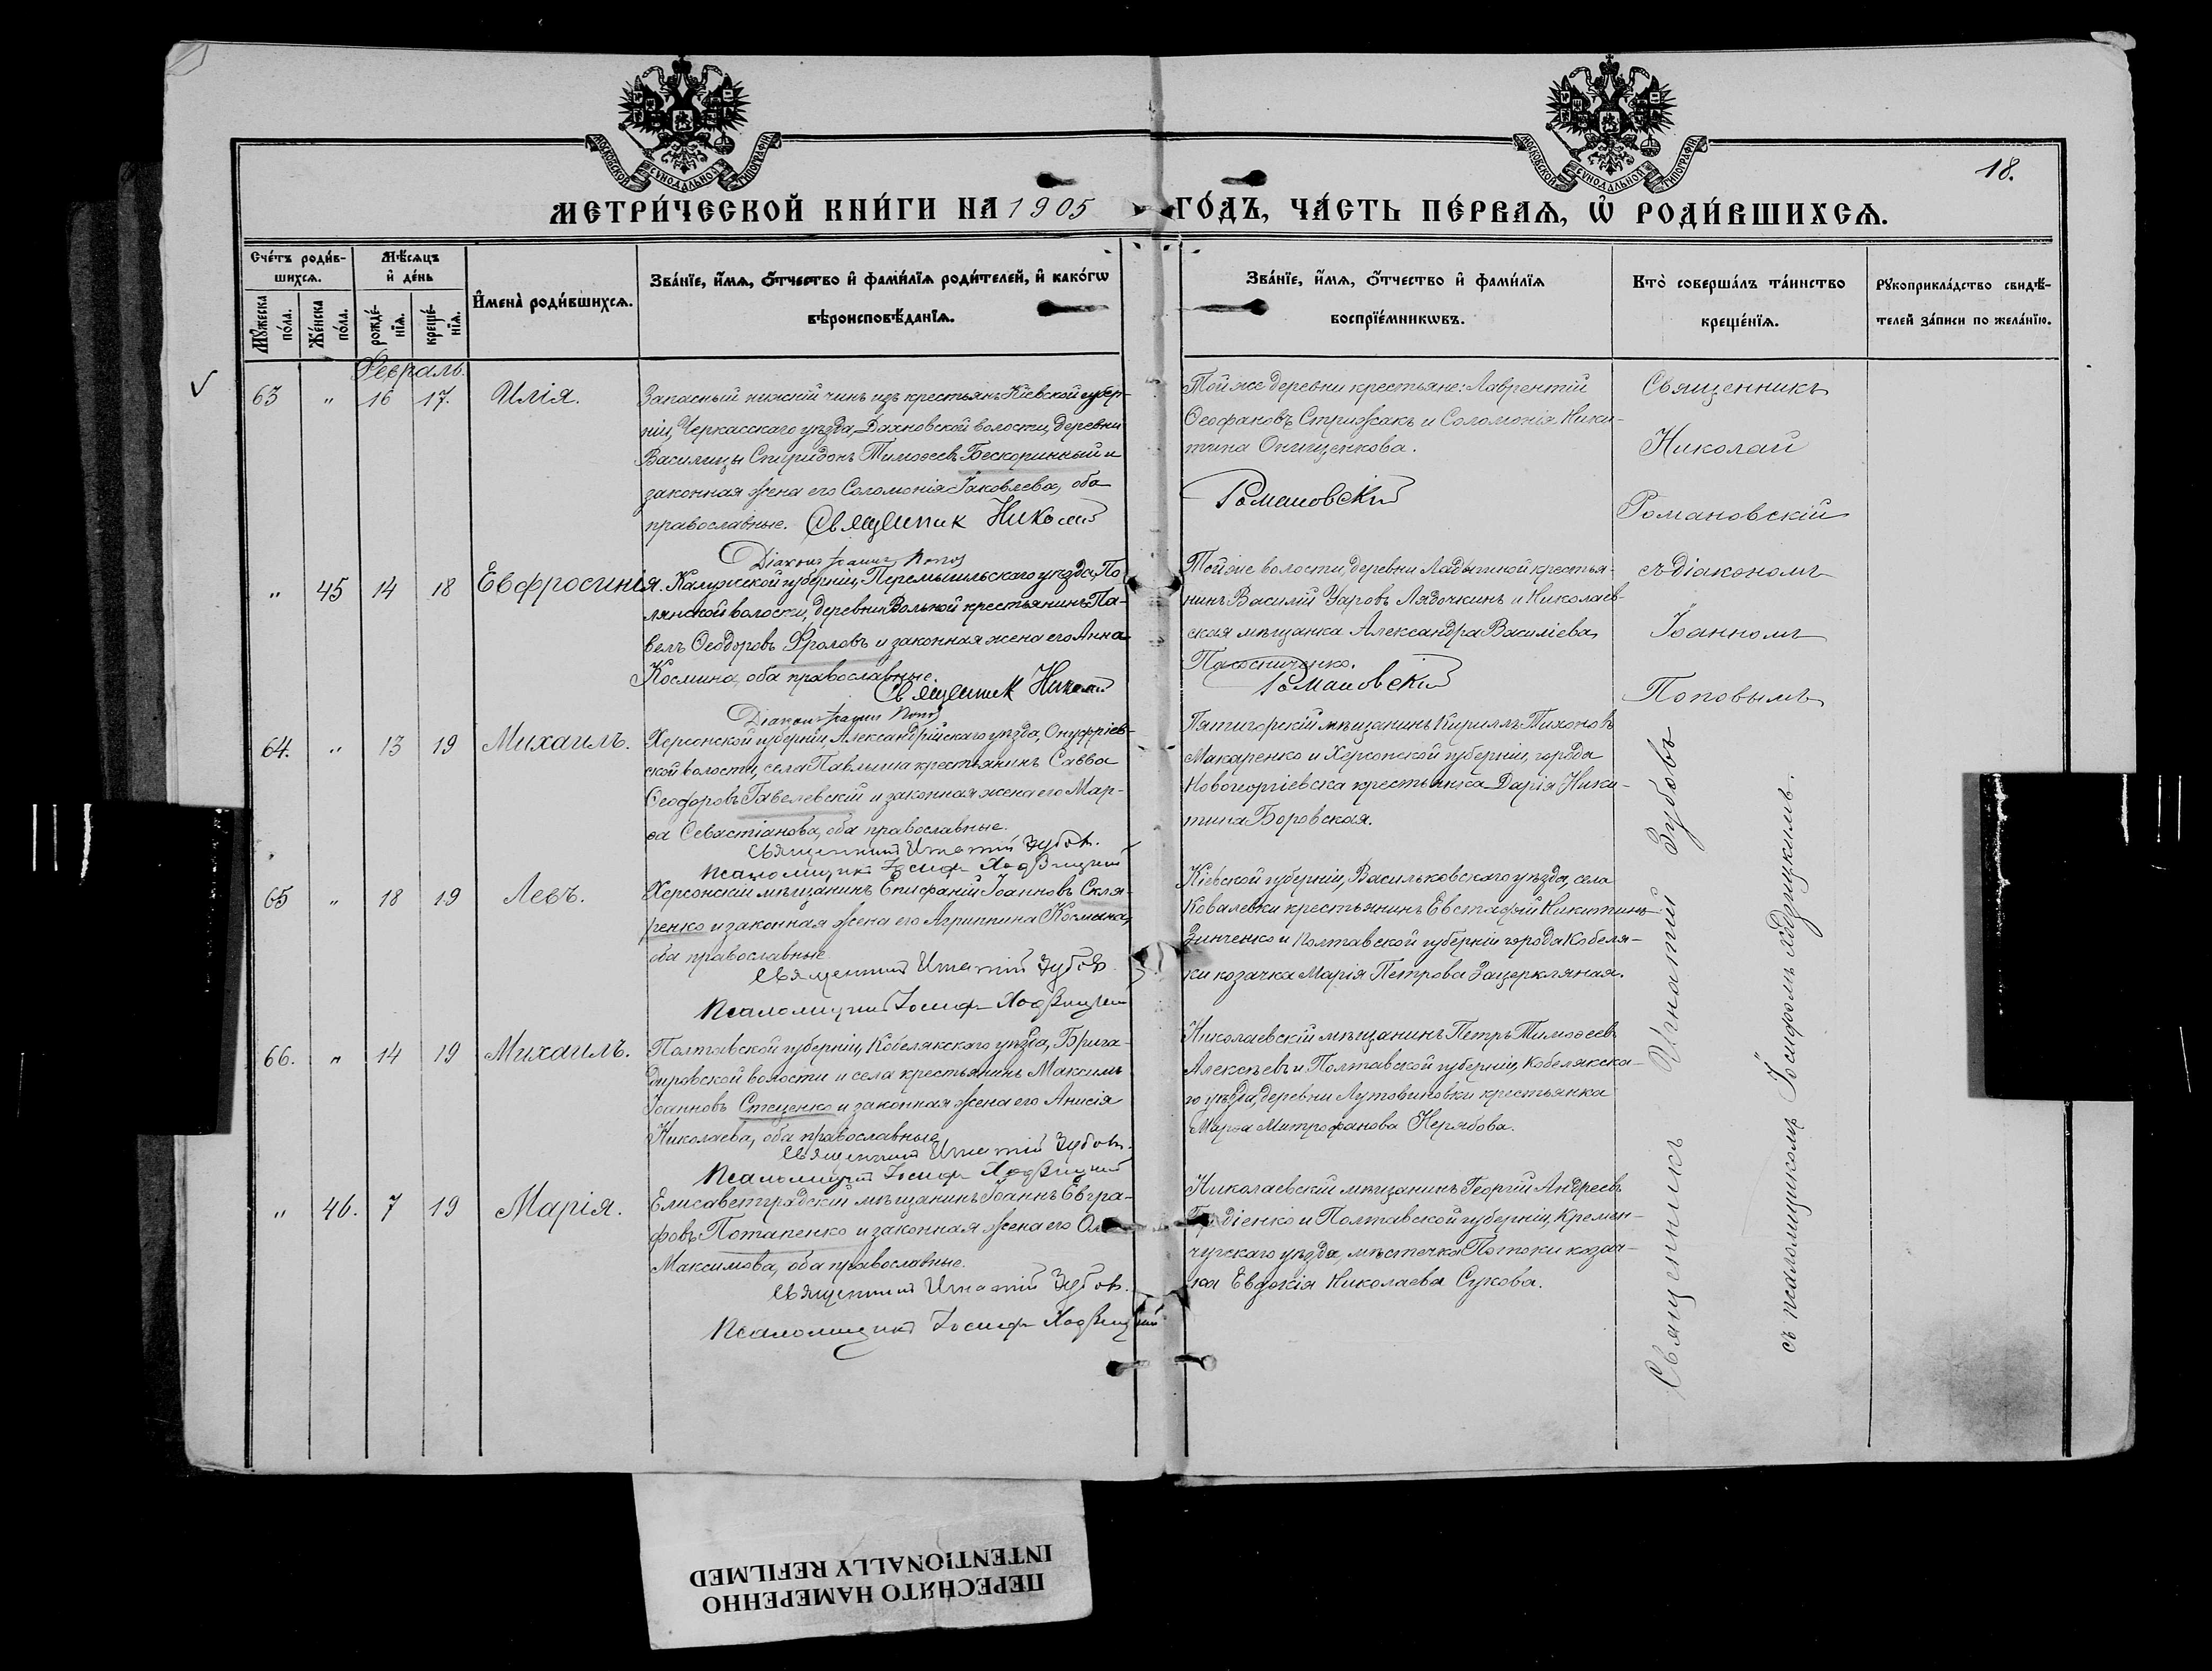 МОСКОВСКОЙ СѴНОДАЛЬНОЙ ТИПОГРАФІИ
МОСКОВСКОЙ СѴНОДАЛЬНОЙ ТИПОГРАФІИ
18.
МЕТРИ́ЧЕСКОЙ КНИ́ГИ НА 1905 ГО́ДЪ, ЧА́СТЬ ПЕ́РВАѦ, Ѡ҆ РОДИ́ВШИХСѦ.
Сче́тъ роди́в-
шихсѧ.
Мꙋ́жеска по́ла.
Же́нска по́ла.
Мѣ́сѧцъ
и҆ де́нь
рожде́-нїѧ.
креще́-нїѧ.
И҆мена̀ роди́вшихсѧ.
Зва́нїе, и҆́мѧ, ѻ҆́тчество и҆ фами́лїѧ роди́телей, и҆ како́гѡ
вѣроисповѣ́данїѧ.
Зва́нїе, и҆́мѧ, ѻ҆́тчество и҆ фами́лїѧ
воспрїе́мникѡвъ.
Кто̀ соверша́лъ та́инство
креще́нїѧ.
Рꙋкоприкла́дство свидѣ́-
телей за́писи по жела́нїю.
Февраль.
63 " 16 17. Илія.
Запасный нижній чинъ изъ крестьянъ Кіевской губер-
ніи, Черкасскаго уѣзда, Дахновской волости, деревни
Василицы Спиридонъ Тимоѳеев Бескоринный и
законная жена его Соломонія Іаковлева, оба
православные. Священник Николай
Діаконъ Іоаннъ Попов
Той же деревни крестьяне: Лаврентій
Ѳеофановъ Стрижакъ и Соломонія Ники-
тина Онищенкова.
Романовскій
Священникъ
Николай
Романовскій
съ діакономъ
Іоанномъ
Поповымъ
" 45 14 18 Евфросинія.
Калужской губерніи, Перемышльскаго уѣзда, По-
лянской волости, деревни Вольной крестьянинъ Па-
велъ Ѳеодоровъ Фроловъ и законная жена его Анна
Космина, оба православные.
Священник Николай
Діаконъ Іоаннъ Попов
Той же волости, деревни Ладыгиной крестья-
нинъ Василій Уаровъ Лядочкинъ и Николаев-
ская мѣщанка Александра Василіева
Романовскій
64. " 13 19 Михаилъ.
Херсонской губерніи, Александрійскаго уѣзда, Онуфріев-
ской волости, села Павлыша крестьянинъ Савва
Ѳеодоровъ Гавелевскій и законная жена его Мар-
ѳа Севастіанова, оба православные.
Священник Игнатій Зубов.
Псаломщикъ Іосиф Ходзицкій
Пятигорскій мѣщанинъ Кириллъ Тихоновъ
Макаренко и Херсонской губерніи, города
Новогеоргіевска крестьянка Дарія Ники-
тина Боровская.
65 " 18 19 Левъ.
Херсонскій мѣщанинъ Епифаній Іоанновъ Скля-
ренко и законная жена его Агриппина Космина,
оба православные
Священник Игнатій Зубов.
Псаломщикъ Іосиф Ходзицкій
Кіевской губерніи, Васильковскаго уѣзда, села
Ковалевки крестьянинъ Евстафій Никитинъ
Зинченко и Полтавской губерніи города Кобеля-
ки козачка Марія Петрова Зацеркляная.
66. " 14 19 Михаилъ.
Полтавской губерніи, Кобелякскаго уѣзда, Брига-
дировской волости и села крестьянинъ Максимъ
Іоанновъ Стеценко и законная жена его Анисія
Николаева, оба православные
Священник Игнатій Зубов.
Псаломщикъ Іосиф Ходзицкій
Николаевскій мѣщанинъ Петръ Тимоѳеевъ
Алексѣевъ и Полтавской губерніи, Кобелякска-
го уѣзда, деревни Лутовиновки крестьянка
Марѳа Митрофанова Нерябова.
" 46. 7 19 Марія.
Елисаветградскій мѣщанинъ Іоаннъ Евгра-
фовъ Потапенко и законная жена его
Максимова, оба православные.
Священник Игнатій Зубов.
Псаломщикъ Іосиф Ходзицкій
Николаевскій мѣщанинъ Георгій Андреевъ
Гордіенко и Полтавской губерніи, Кремен-
чугскаго уѣзда, мѣстечка Потоки козач-
ка Евдокія Николаева Сукова.
Священникъ Игнатій Зубовъ
съ псаломщикомъ Іосифомъ Ходзицкимъ.
ПЕРЕСНЯТО НАМЕРЕННО
INTENTIONALLY REFILMED